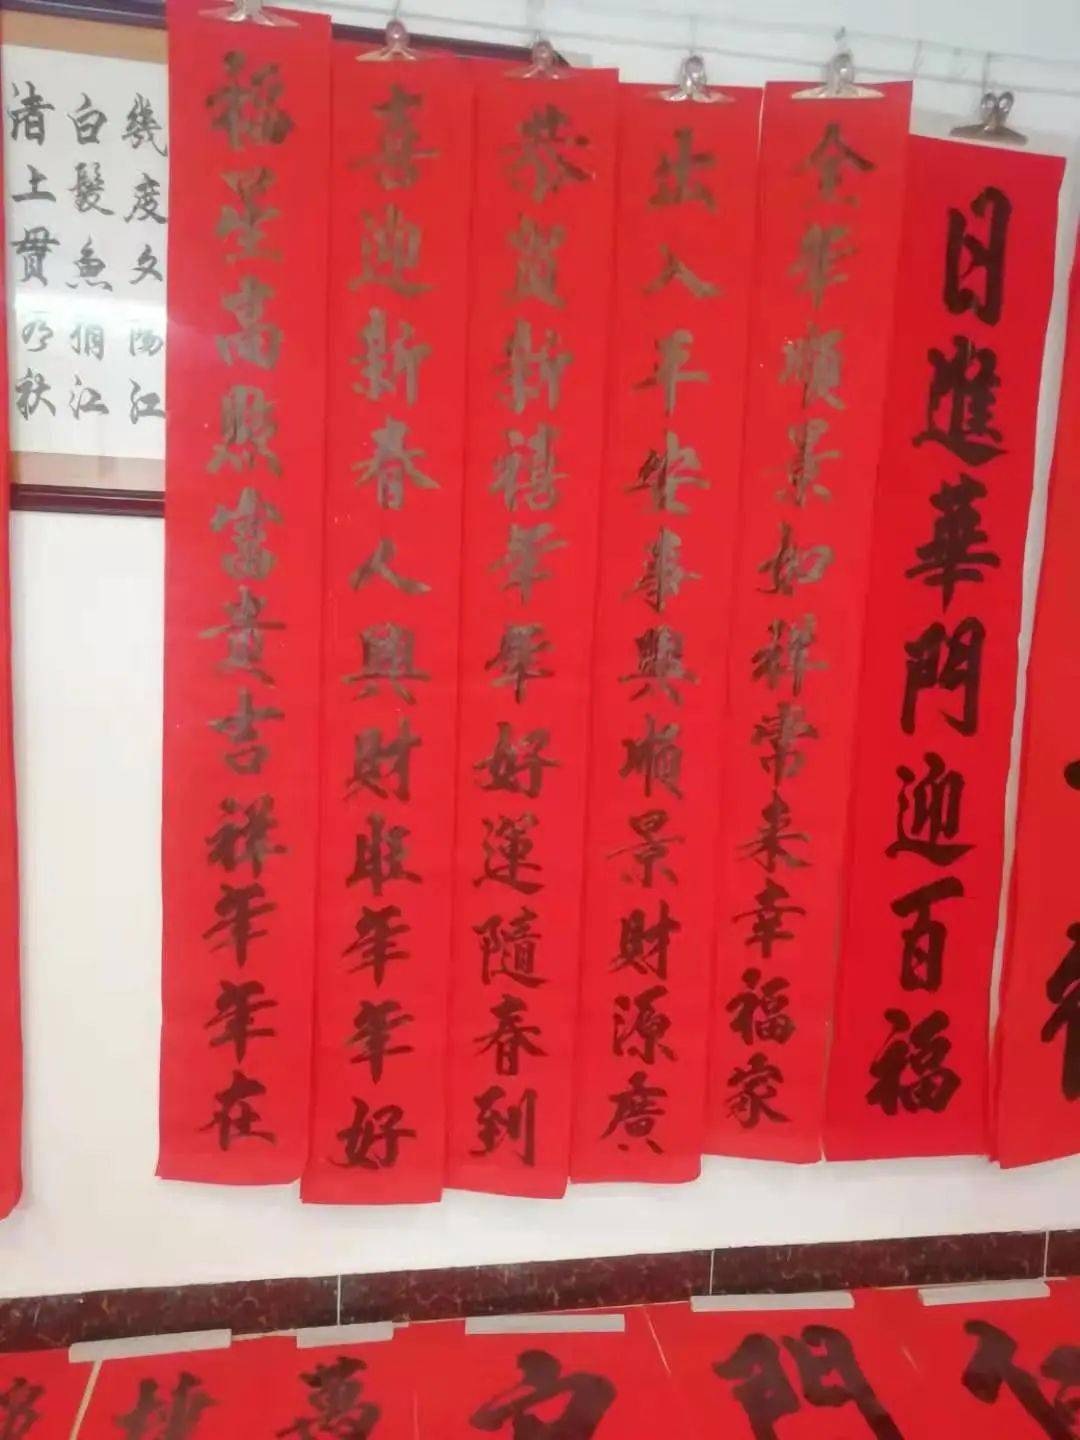 日進華門迎百福
全年順景如祥常来幸福家
出入平安事興順景財源廣
恭賀新禧年年好運隨春到
喜迎新春人興財旺年年好
福星高照富貴吉祥年年在
幾度夕陽江
白髮魚江
渚上貫秋
門
萬